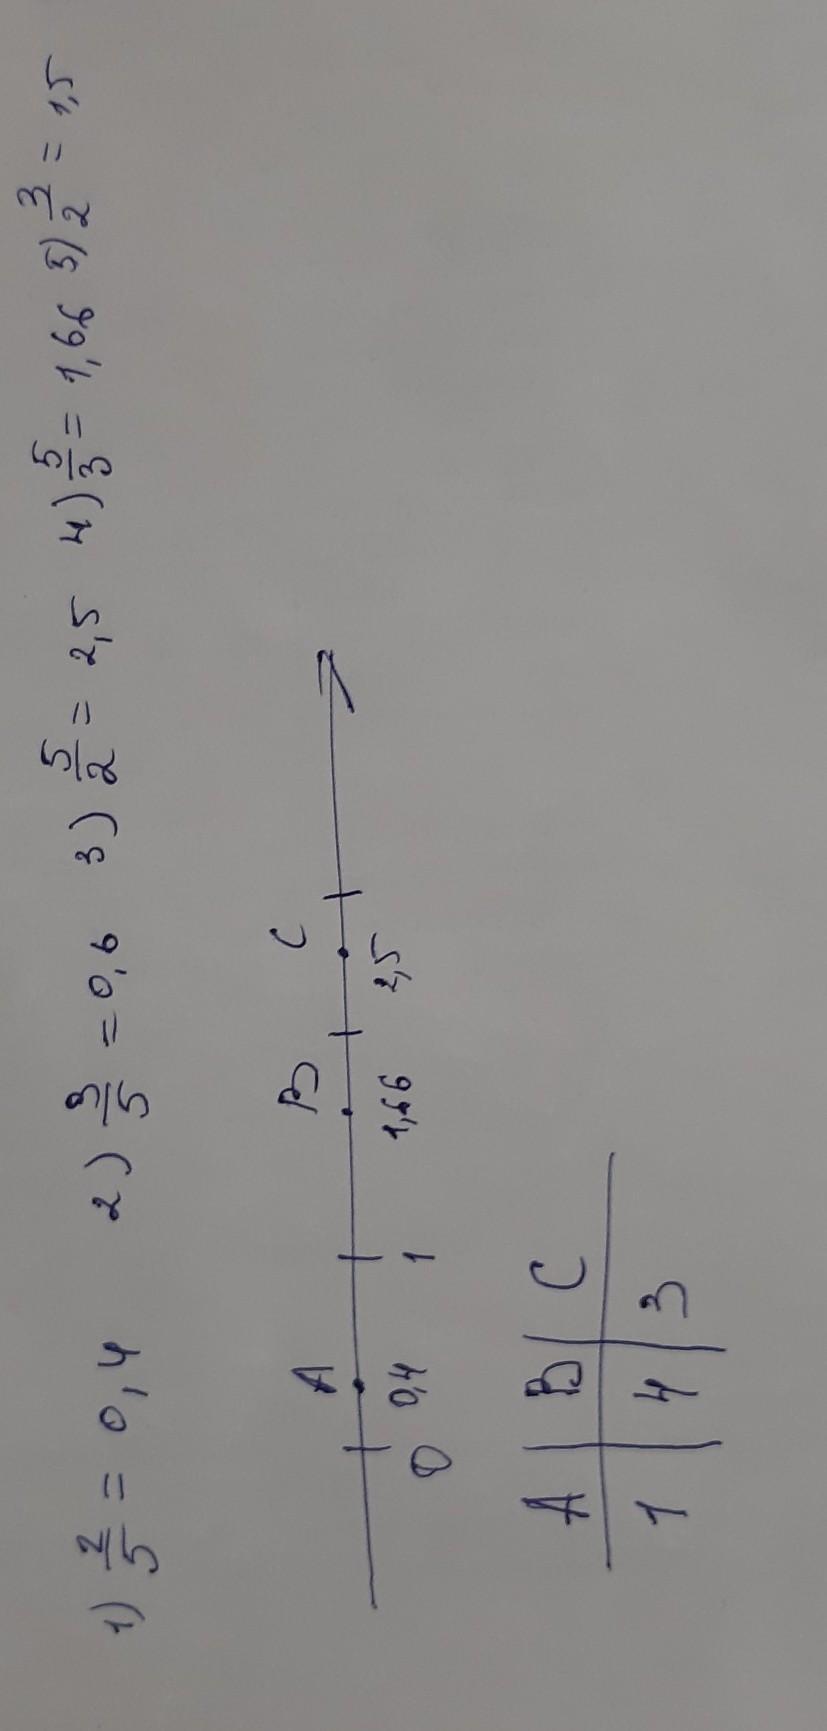 1) 2/5 = 0,4 2) 3/5 = 0,6 3) 5/2 = 2,5 4) 5/3 = 1,66 5) 3/2 = 1,5
A B C
0 0,4 1 1,66 2,5
A | B | C
1 | 4 | 3